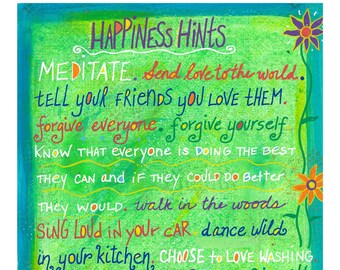 HAPPINESS HINTS
MEDITATE. Send love to the world.
tell your friends you love them.
forgive everyone. forgive yourself
KNOW THAT everyone is DOING THE BEST
THEY CAN and if THEY COULD DO Better
THEY WOULD. walk in the woods
SING LOUD IN your CAR dance wild
in your kitchen. CHOOSE to LOVE WASHING